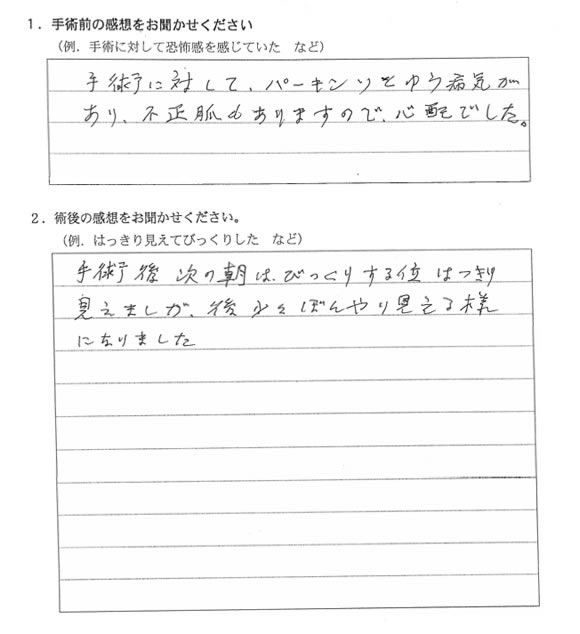 1．手術前の感想をお聞かせください
（例．手術に対して恐怖感を感じていた　など）
手術に対して、パーキンソとゆう病気が
あり、不正脈もありますので、心配でした。
2．術後の感想をお聞かせください。
（例．はっきり見えてびっくりした　など）
手術後次の朝は、びっくりする位はっきり
見えましが、後少々ぼんやり見える様
になりました